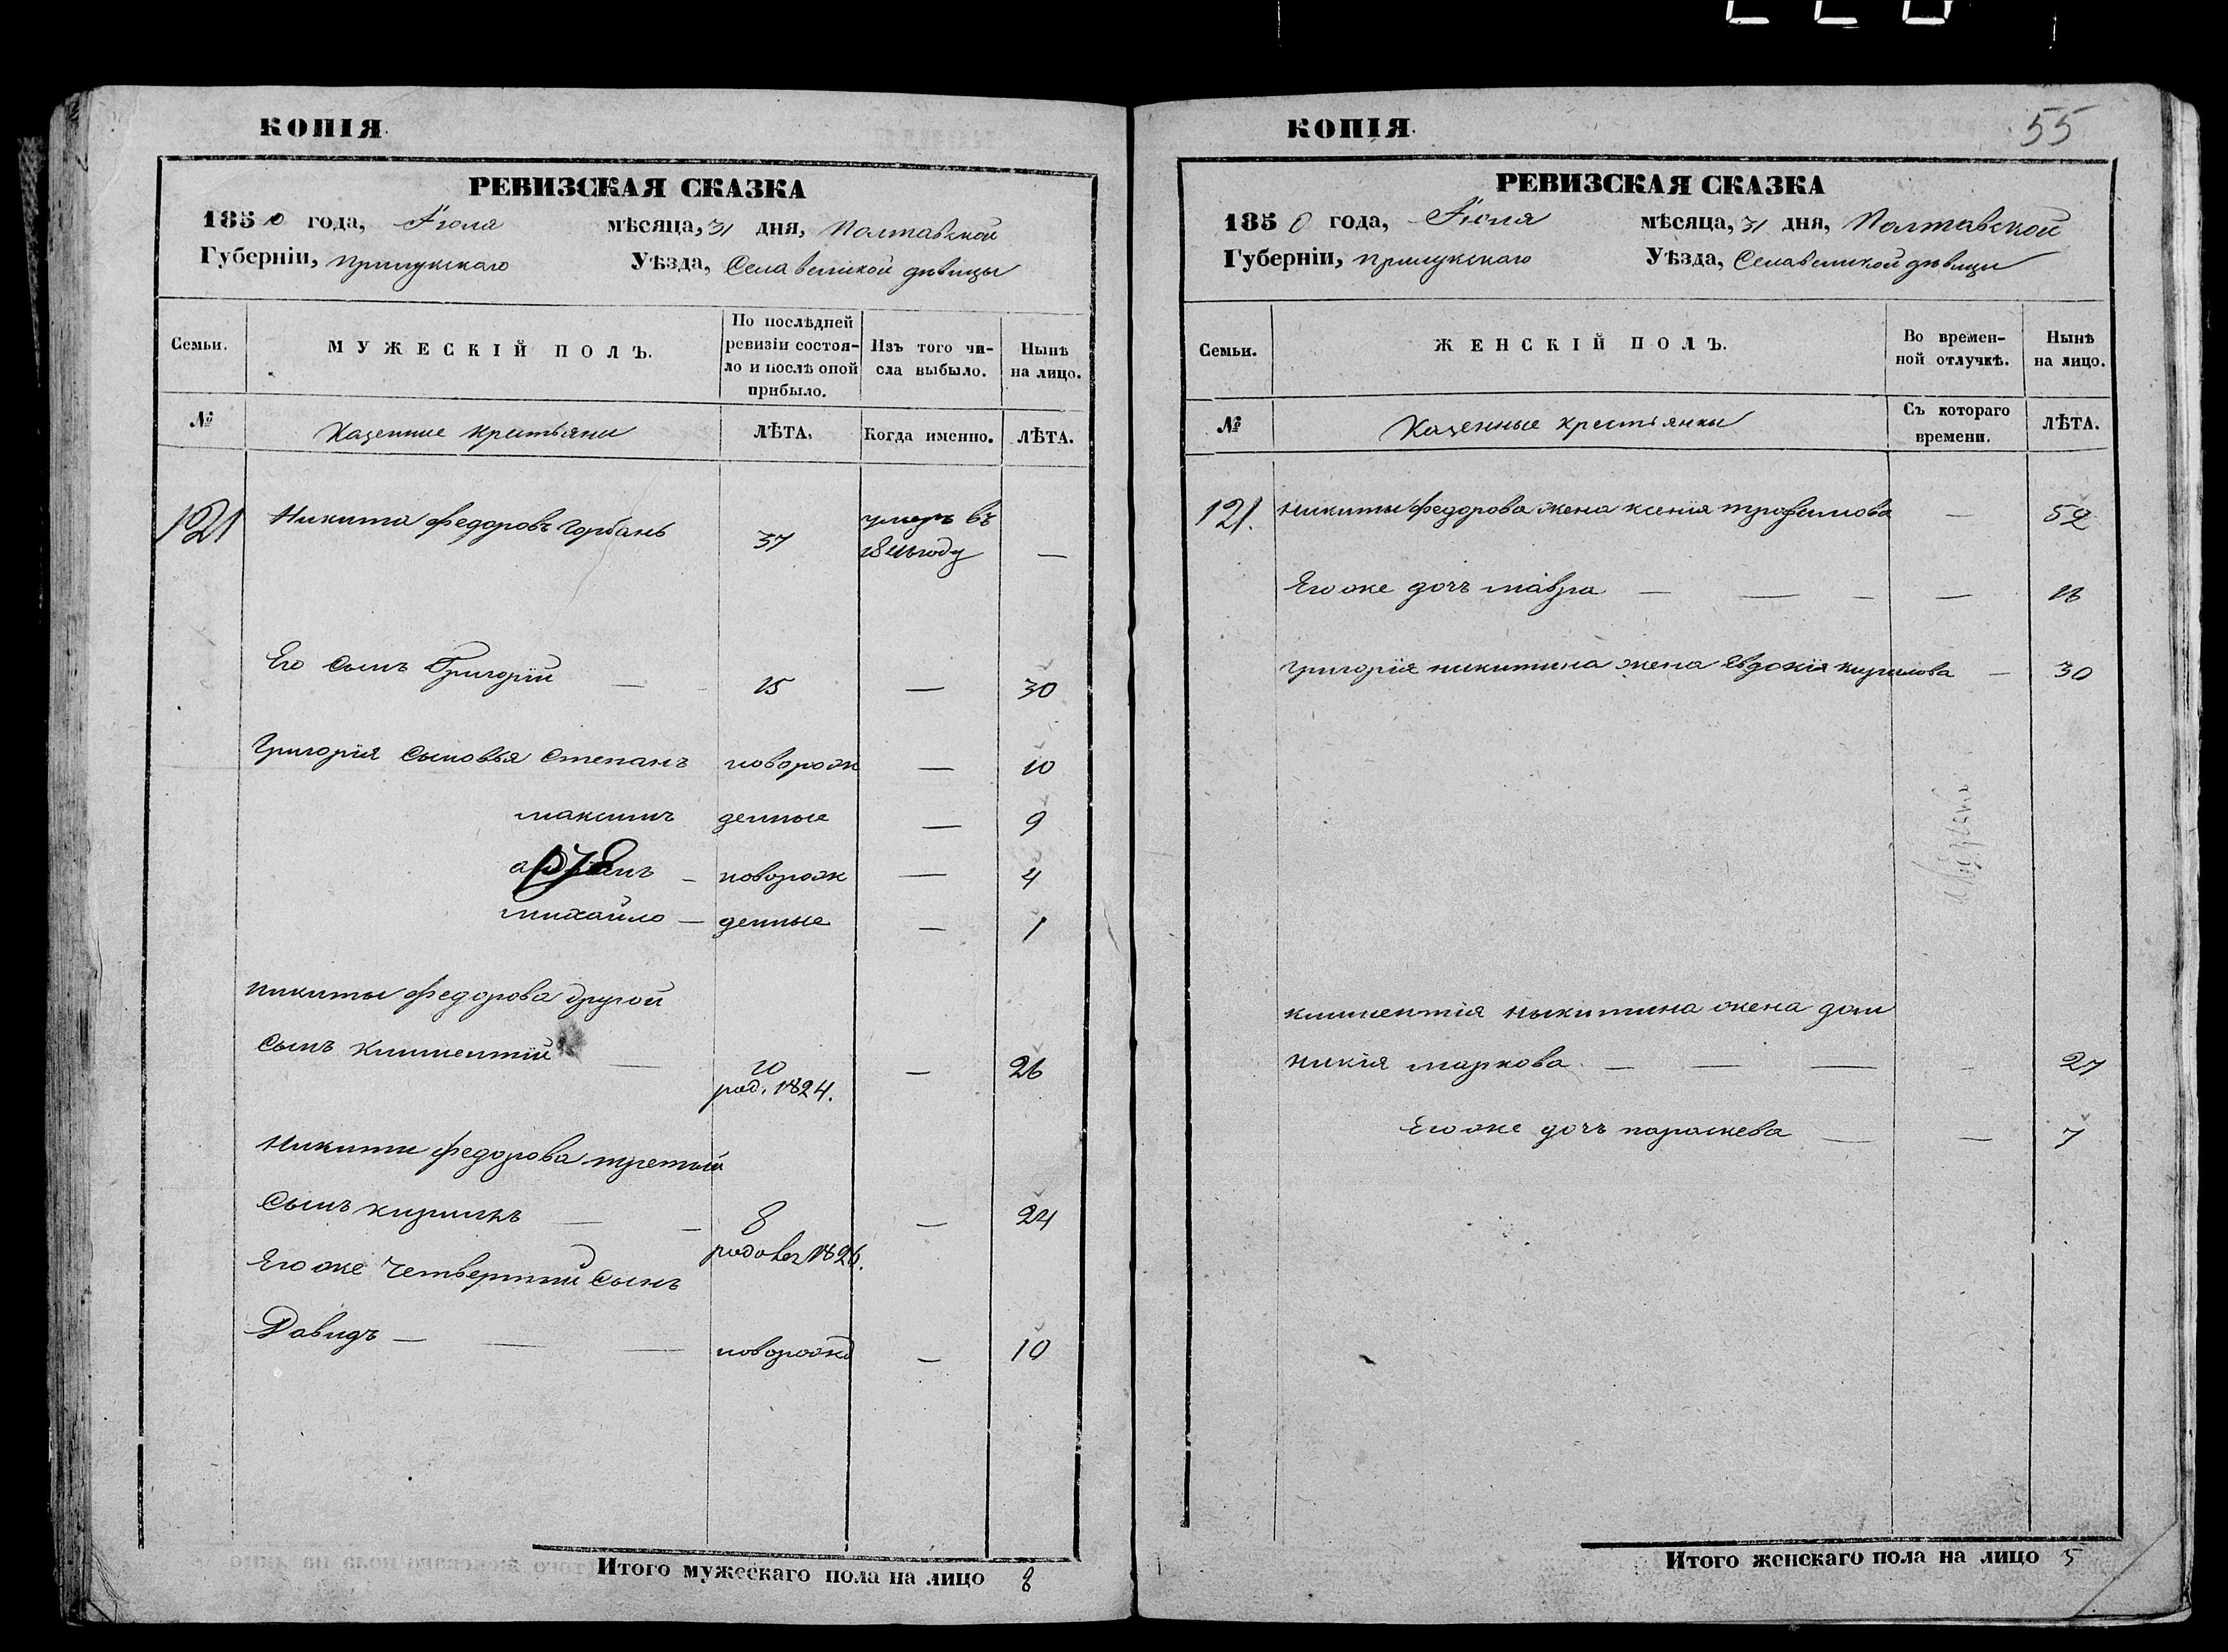 КОПІЯ.
РЕВИЗСКАЯ СКАЗКА
1850 года, Іюля мѣсяца, 31 дня, Полтавской
Губерніи, прилукскаго Уѣзда, Села великой дѣвицы
Семьи.
МУЖЕСКІЙ ПОЛЪ.
По послѣдней
ревизіи состоя-
ло и послѣ оной
прибыло.
Изъ того чи-
сла выбыло.
Нынѣ
на лицо.
№
Казенные крестьяни
ЛѢТА.
Когда именно.
ЛѢТА.
121 Никита федоровъ Горбань 37 умеръ въ
году —
Его сынъ Григорій — 15 — 30
Григорія сыновья Степанъ новорож — 10
максимъ денные — 9
— новорож — 4
михайло — денные — 1
никиты федорова другой
сынъ климентій — 10 — 26
род. 1824.
Никити федорова третий
сынъ кирилъ — — 8 — 24
1826.
Его же Четвертий сынъ
Давидъ — — — новорожд — 10
Итого мужескаго пола на лицо 8
КОПІЯ.
55
РЕВИЗСКАЯ СКАЗКА
1850 года, Іюля мѣсяца, 31 дня, Полтавской
Губерніи, прилукскаго Уѣзда, Села великой дѣвици
Семьи.
ЖЕНСКІЙ ПОЛЪ.
Во времен-
ной отлучкѣ.
Нынѣ
на лицо.
№
Казенные крестьянки
Съ котораго
времени.
ЛѢТА.
121. Никиты федорова жена ксенія трофимова — 52
Его же дочъ мавра — — — — 13
григорія никитина жена Явдокія кирилова — 30
климентія никитина жена дом
никія маркова — — — — 27
Его же дочъ параскева — — 7
Итого женскаго пола на лицо 5